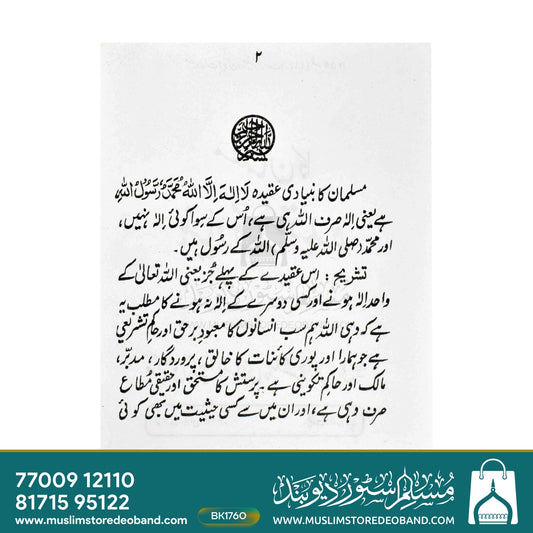 ۲
مسلمان کا بنیادی عقیدہ لَا اِلٰہَ اِلَّا اللّٰہُ مُحَمَّدٌ رَّسُوْلُ اللّٰہِ،
ہے یعنی اِلٰہ صرف اللہ ہی ہے، اُس کے سوا کوئی اِلٰہ نہیں،
اور محمّد (صلی اللہ علیہ وسلّم) اللہ کے رسُول ہیں۔
تشریح : اس عقیدے کے پہلے جُز یعنی اللہ تعالیٰ کے
واحد اِلٰہ ہونے اور کسی دوسرے کے اِلٰہ نہ ہونے کا مطلب یہ
ہے کہ وہی اللہ ہم سب انسانوں کا معبودِ برحق اور حاکم تشریعی
ہے جو ہمارا اور پوری کائنات کا خالق، پروردگار، مدبّر،
مالک اور حاکم تکوینی ہے۔ پرستش کا مستحق اور حقیقی مُطاع
صرف وہی ہے، اور ان میں سے کسی حیثیت میں بھی کوئی
77009 12110
81715 95122
www.muslimstoredeoband.com
BK1760
مسلم سٹور دیوبند
WWW.MUSLIMSTOREDEOBAND.COM